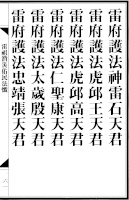 雷府護法神雷石天君
雷府護法虎邱王天君
雷府護法虎邱高天君
雷府護法仁聖康天君
雷府護法太歲殷天君
雷府護法忠靖張天君
雷祖消災佑民法懺